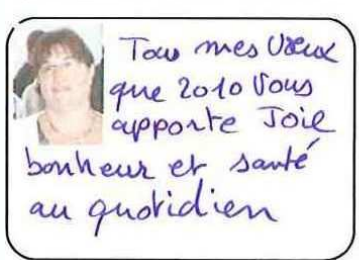 Tous mes Vœux
que 2010 Vous
apporte Joie
bonheur et santé
au quotidien